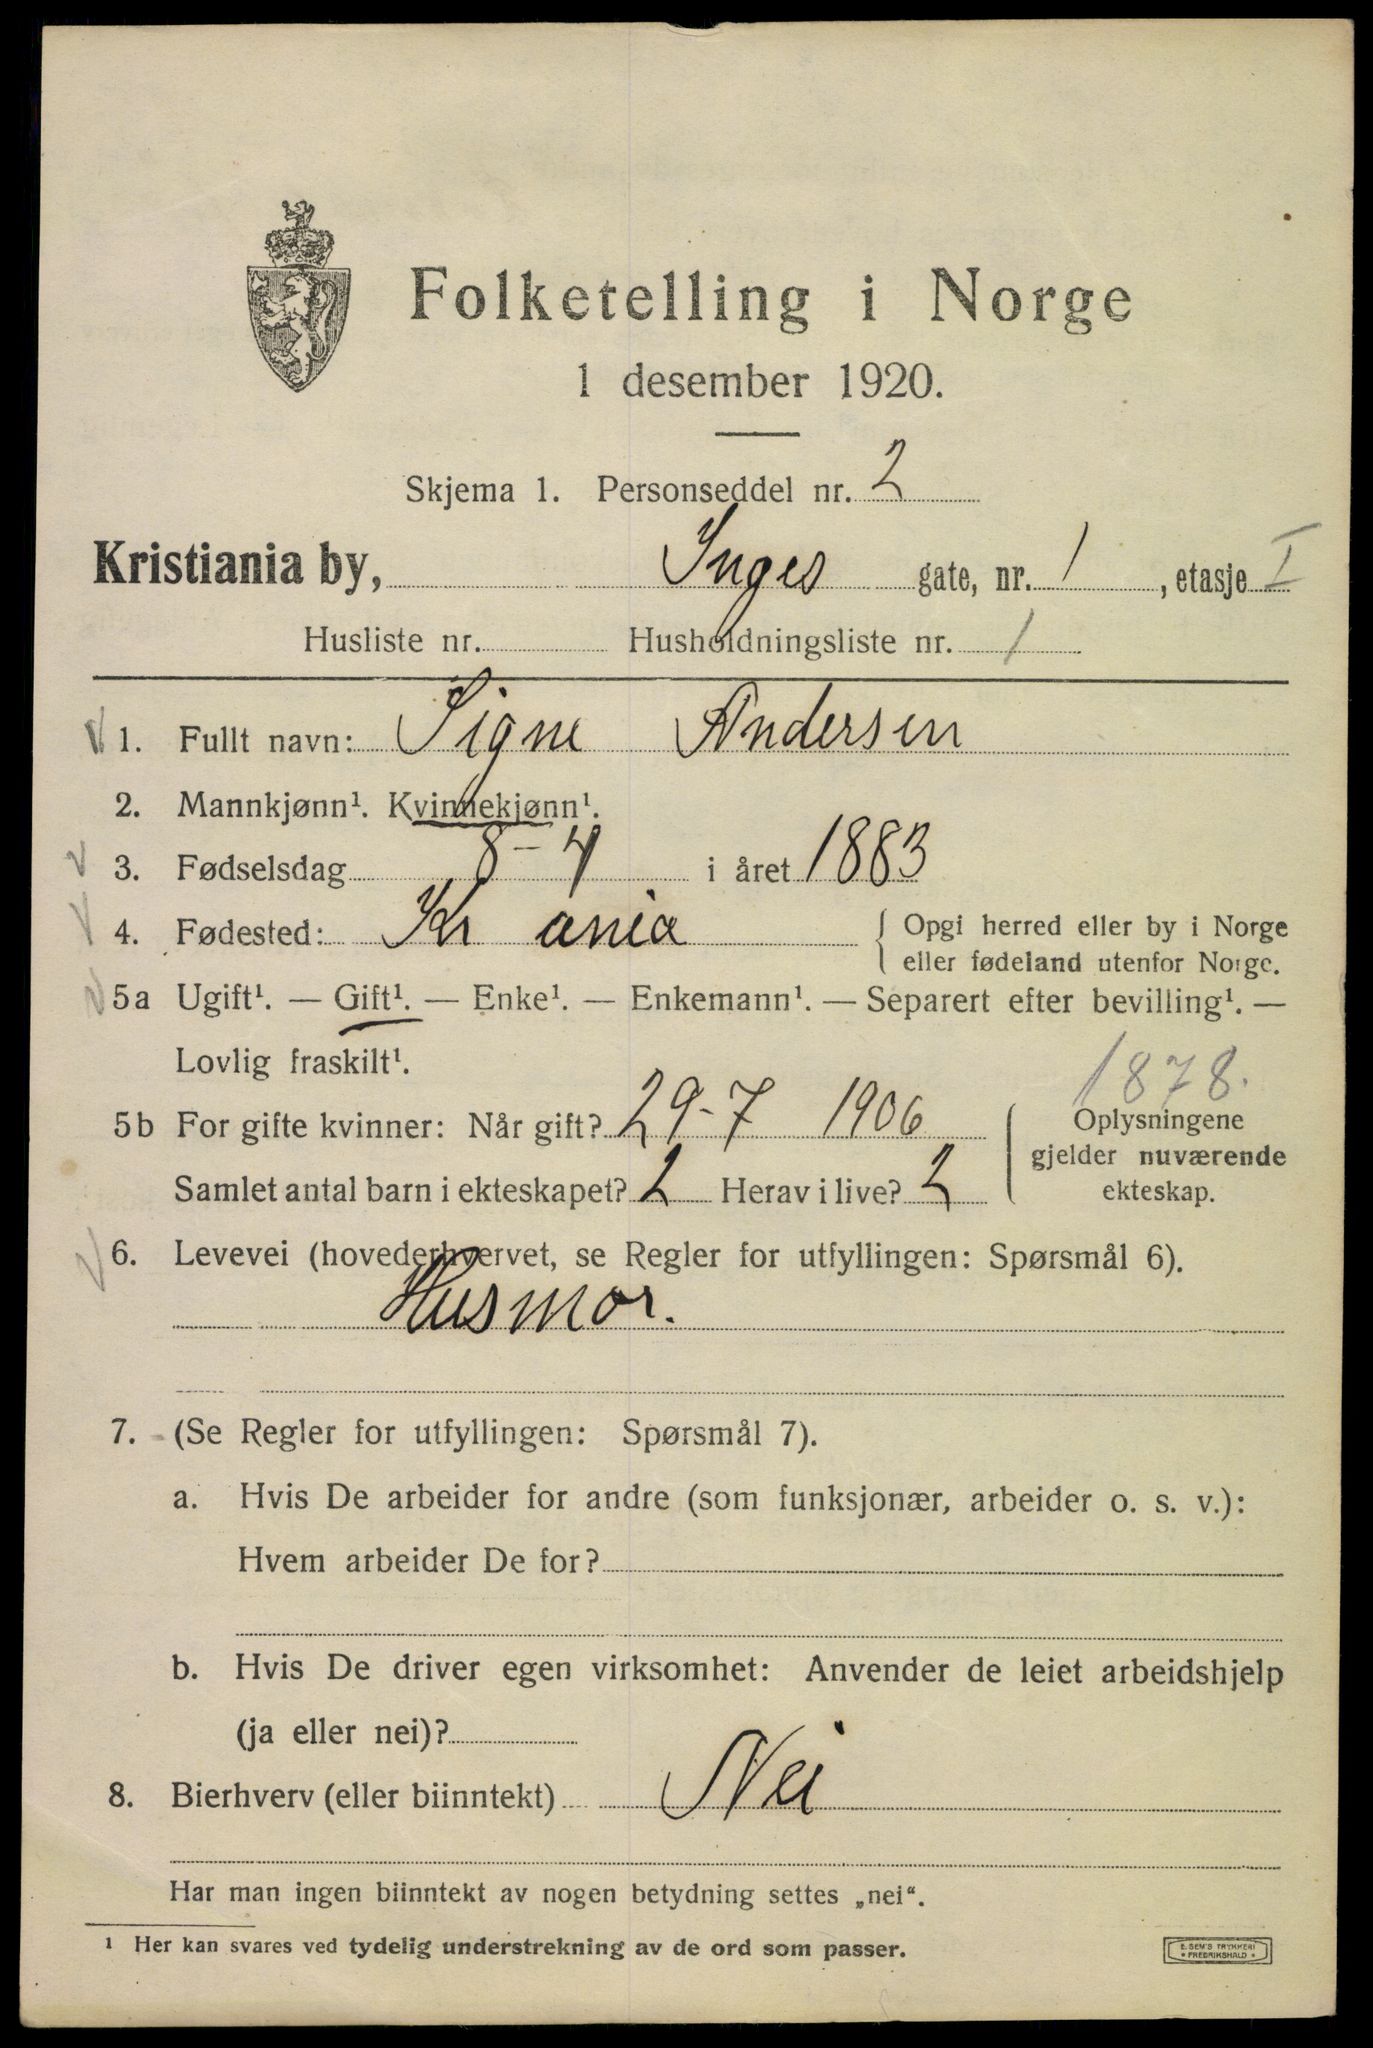 Folketelling i Norge
1 desember 1920.
Skjema 1. Personseddel nr. 2
Kristiania by, Inges gate, nr. 1, etasje I
Husliste nr. Husholdningsliste nr. 1
1. Fullt navn: Signe Andersen
2. Mannkjønn¹. Kvinnekjønn¹.
3. Fødselsdag 8-4 i året 1883
4. Fødested: Kr ania { Opgi herred eller by i Norge
eller fødeland utenfor Norge.
5a Ugift¹. — Gift¹. — Enke¹. — Enkemann¹. — Separert efter bevilling¹. —
Lovlig fraskilt¹.
1878.
5b For gifte kvinner: Når gift? 29-7 1906
Samlet antal barn i ekteskapet? 2 Herav i live? 2
Oplysningene
gjelder nuværende
ekteskap.
6. Levevei (hovederhvervet, se Regler for utfyllingen: Spørsmål 6).
Husmor.
7. (Se Regler for utfyllingen: Spørsmål 7).
a. Hvis De arbeider for andre (som funksjonær, arbeider o. s. v.):
Hvem arbeider De for?
b. Hvis De driver egen virksomhet: Anvender de leiet arbeidshjelp
(ja eller nei)?
8. Bierhverv (eller biinntekt) Nei
Har man ingen biinntekt av nogen betydning settes „nei“.
¹ Her kan svares ved tydelig understrekning av de ord som passer.
E. SEM'S TRYKKERI
• FREDRIKSHALD •